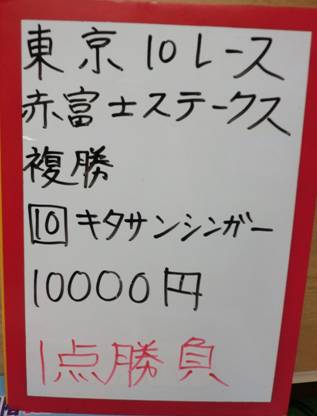 東京10レース
赤富士ステークス
複勝
10 キタサンシンガー
10000円
1点勝負